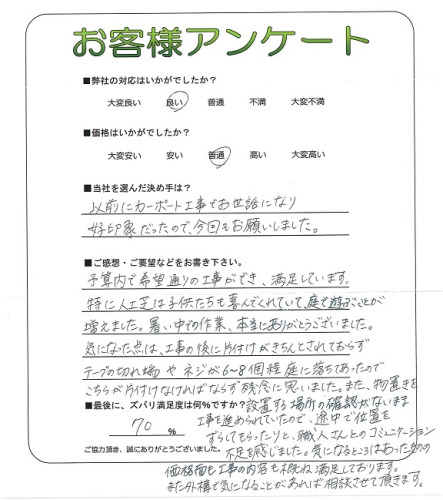 お客様アンケート
■弊社の対応はいかがでしたか？
大変良い 良い 普通 不満 大変不満
■価格はいかがでしたか？
大変安い 安い 普通 高い 大変高い
■当社を選んだ決め手は？
以前にカーポート工事でお世話になり
好印象だったので、今回もお願いしました。
■ご感想・ご要望などをお書き下さい。
予算内で希望通りの工事ができ、満足しています。
特に人工芝は子供たちも喜んでくれていて、庭で遊ぶことが
増えました。暑い中での作業、本当にありがとうございました。
気になった点は、工事の後に片付けがきちんとされておらず
テープの切れ端やネジが6~8個程庭に落ちてあったので
こちらが片付けなければならず残念に思いました。また、物置きを
■最後に、ズバリ満足度は何％ですか？設置する場所の確認がないまま
70 % 工事を進められていたので、途中で位置を
ずらしてもらったりと、職人さんとのコミュニケーション
ご協力頂き、誠にありがとうございました。不足を感じました。気になるところはあったものの
価格面も工事の内容も概ね満足しております。
また外構で気になることがあれば相談させて頂きます。